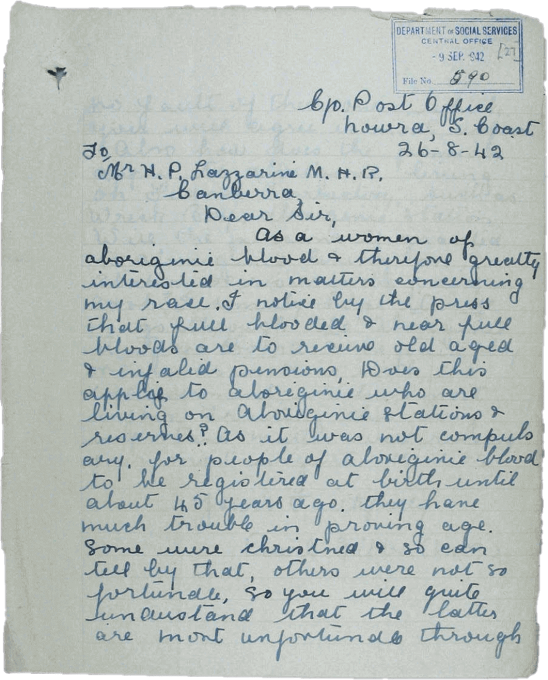 DEPARTMENT OF SOCIAL SERVICES
CENTRAL OFFICE
-9 SEP. 1942
[27]
File No. 590
C/o. Post Office
Nowra, S. Coast
26-8-42
To
Mr H. P. Lazzarine M. H. R.
Canberra,
Dear Sir,
As a women of
aboriginie blood & therefore greatly
interested in matters concerning
my race. I notice by the press
that full blooded & near full
bloods are to recieve old aged
& infalid pensions, Does this
apply to aboriginie who are
living on Aboriginie Stations &
reserves? As it was not compuls
ary. for people of aboriginie blood
to be registered at birth until
about 45 years ago. they have
much trouble in proving age.
Some were christned & so can
tell by that, others were not so
fortunde, so you will quite
understand that the latter
are most unfortunde through